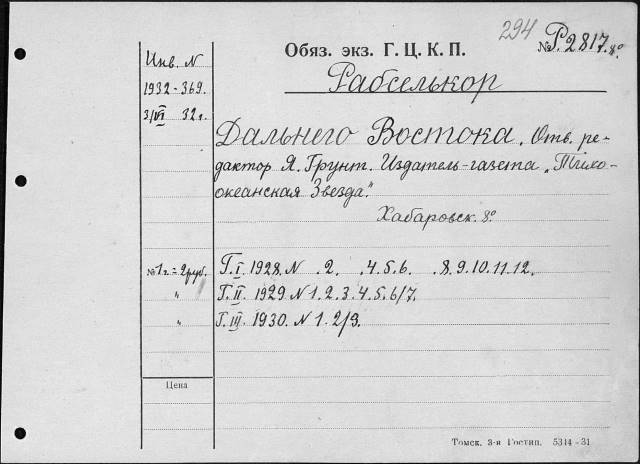 294
Обяз. экз. Г. Ц. К. П.
№ Р. 2817. 8°
Рабселькор
Инв. N
1932-369.
3/VI 32 г.
Дальнего Востока. Отв. ре-
дактор Я. Грунт. Издатель-газета „Тихо-
океанская Звезда."
Хабаровск. 8°
№ 1 г. = 2 руб. Г. I 1928. N . 2. . 4. 5. 6. . 8. 9. 10. 11. 12.
" Г. II 1929. N 1. 2. 3. 4. 5. 6/7.
" Г. III 1930. N 1. 2/3.
Цена
Томск. 3-я Гостип. 5314-31